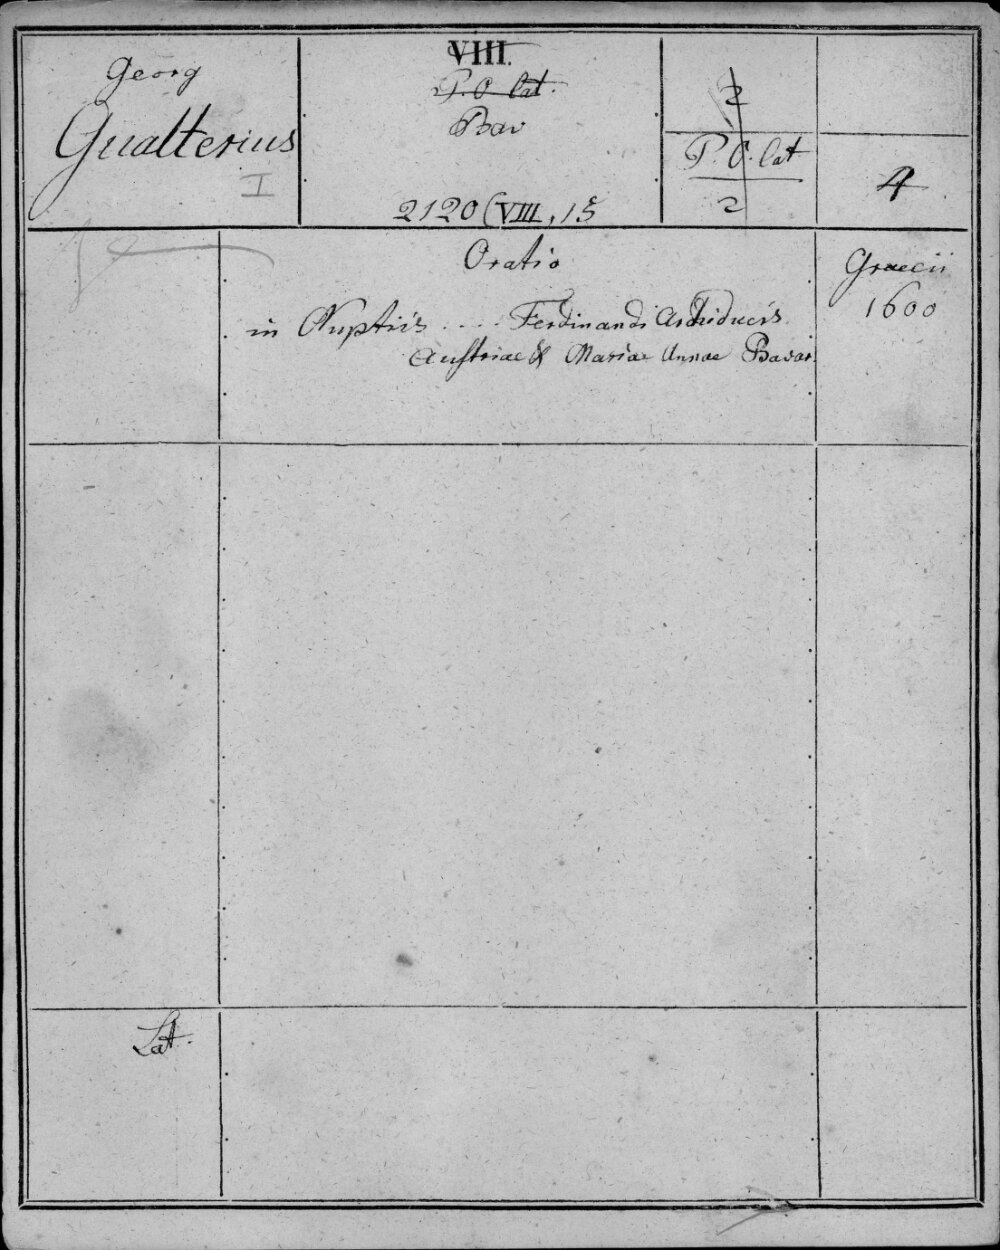 Georg
Gualterius
I
VIII.
P. O. lat.
Bav
2120 (VIII, 15
2
P. O. lat.
2
4
Oratio
in Nuptiis .... Ferdinandi Archiducis
Austriae & Mariae Annae Bavar.
Graecii
1600
Lat.